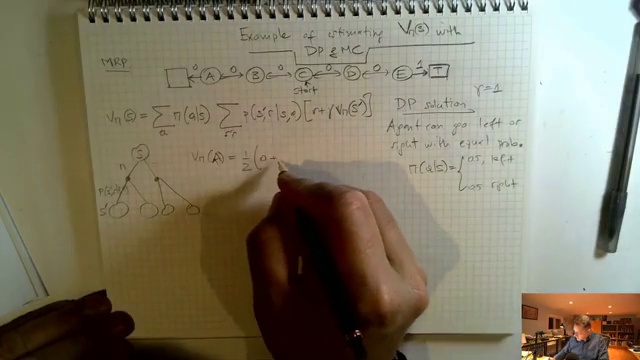 Example of estimating Vπ(s) with
DP & MC
MRP
0 0 0 0 0 1
A B C D E T
start
γ=1
Vπ(s) = ∑a π(a|s) ∑s'r p(s',r|s,a) [r+γVπ(s')]
DP solution
Agent can go left or
right with equal prob.
π(a|s) = { 0.5, left
0.5 right
S
π
s'
Vπ(A) = 1/2 (0+